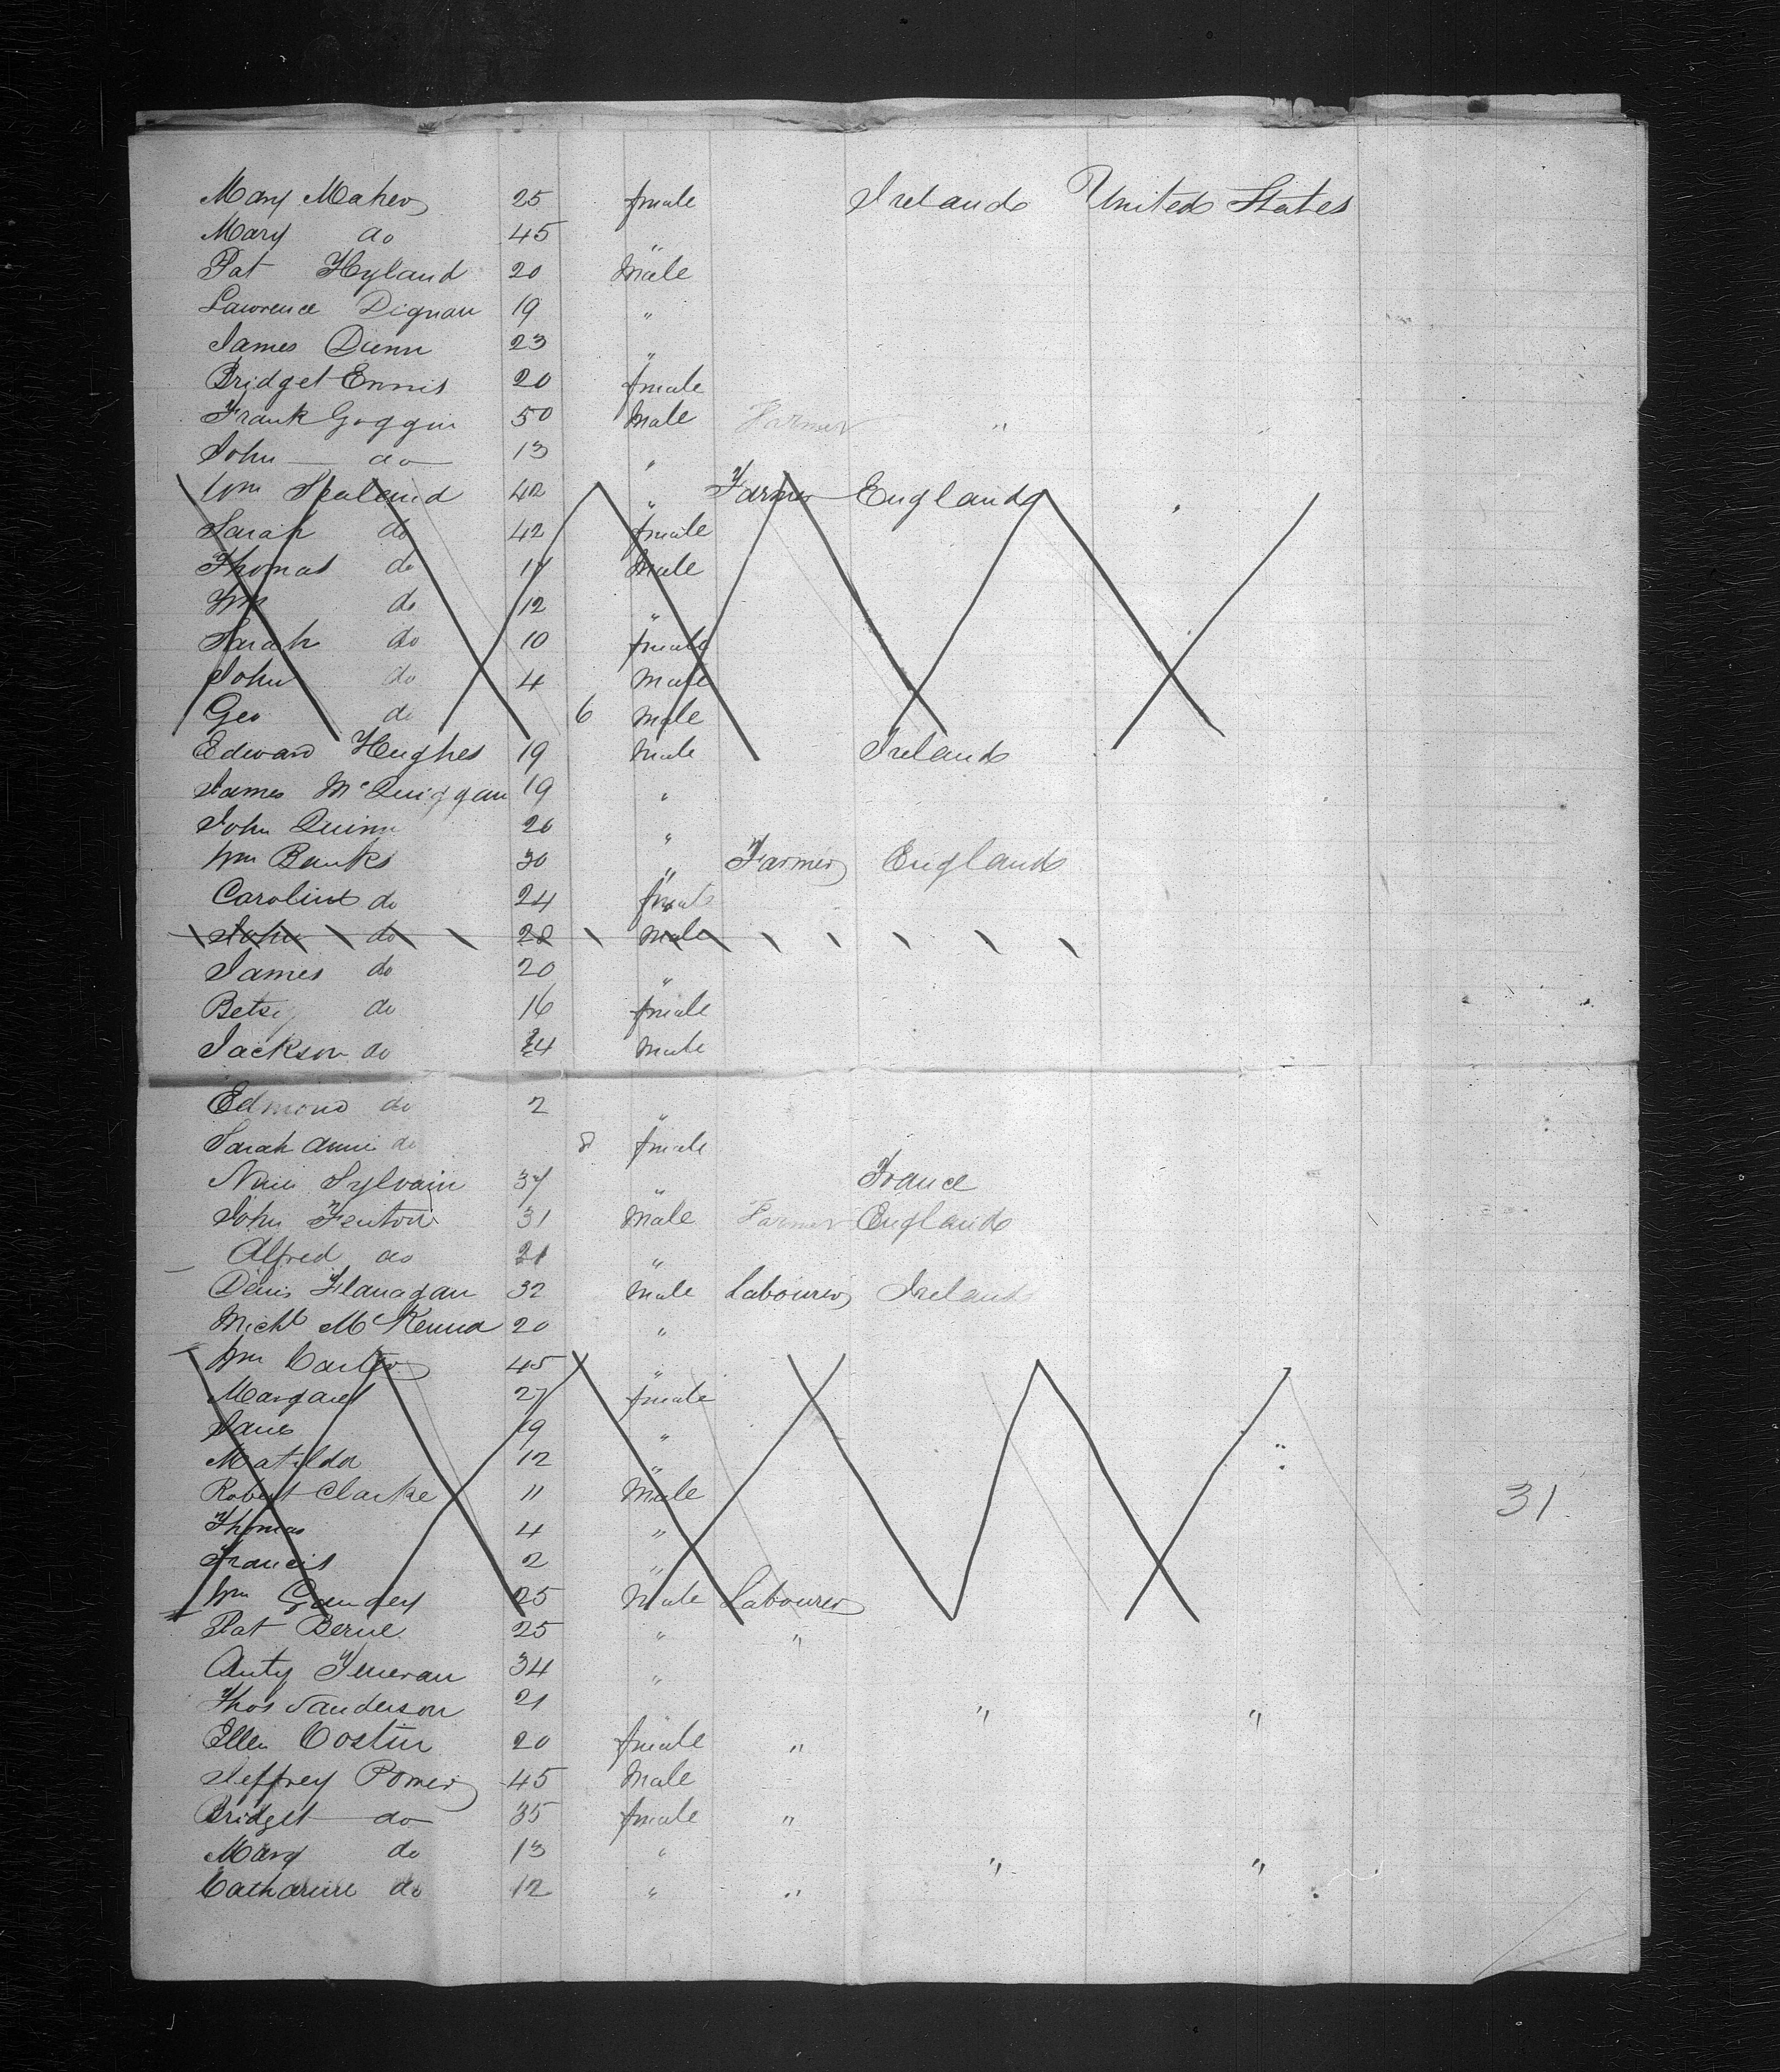 Mary Maher 25 female Ireland United States
Mary do 45 "
Pat Hyland 20 Male
Lawrence Dignan 19 "
James Dunn 23 "
Bridget Ennis 20 female
Frank Goggin 50 Male Farmer "
John do 13 "
Wm 42 " Farmer England
Sarah do 42 female
Thomas do 17 Male
Wm do 12 "
Sarah do 10 female
John do 4 Male
Geo do 6 Male
Edward Hughes 19 Male Ireland
James McQuiggan 19 "
John Quinn 20 "
Wm Banks 30 " Farmer England
Caroline do 24 female
John do 28 Male
James do 20 "
Betsy do 16 female
Jackson do 24 Male
Edmond do 2 "
Sarah Annie do 8 female
Sylvain 37 " France
John Fenton 31 Male Farmer England
Alfred do 21 "
Denis Flanagan 32 Male Labourer Ireland
Michl McKenna 20 "
Wm Carter 45 "
Margaret 27 female
Jane 19 "
Matilda 12 "
Robert Clarke 11 Male
Thomas 4 "
31
Francis 2 "
Wm 25 Male Labourer
Pat Berne 25 " "
Anty 34 "
Thos Sanderson 21 " "
Ellen Costin 20 female "
Jeffrey Power 45 Male
Bridget do 35 female "
Mary do 13 " " "
Catharine do 12 " "